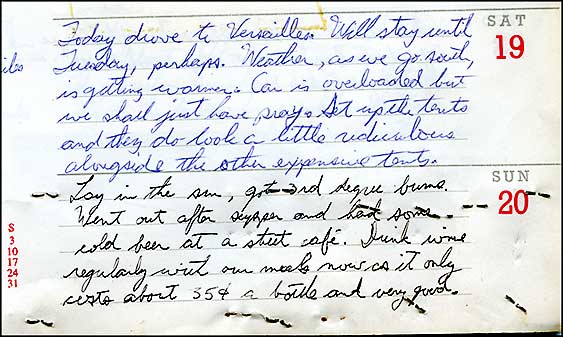 SAT
19
Today drove to Versailles. Will stay until
Tuesday, perhaps. Weather, as we go south,
is getting warmer. Car is overloaded but
we shall just have pray. Set up the tents
and they do look a little rediculous
alongside the other expensive tents.
SUN
20
Lay in the sun, got 3rd degree burns.
Went out after supper and had some
cold beer at a street café. Drink wine
regularly with our meals now as it only
costs about 35¢ a bottle and very good.
S
3
10
17
24
31